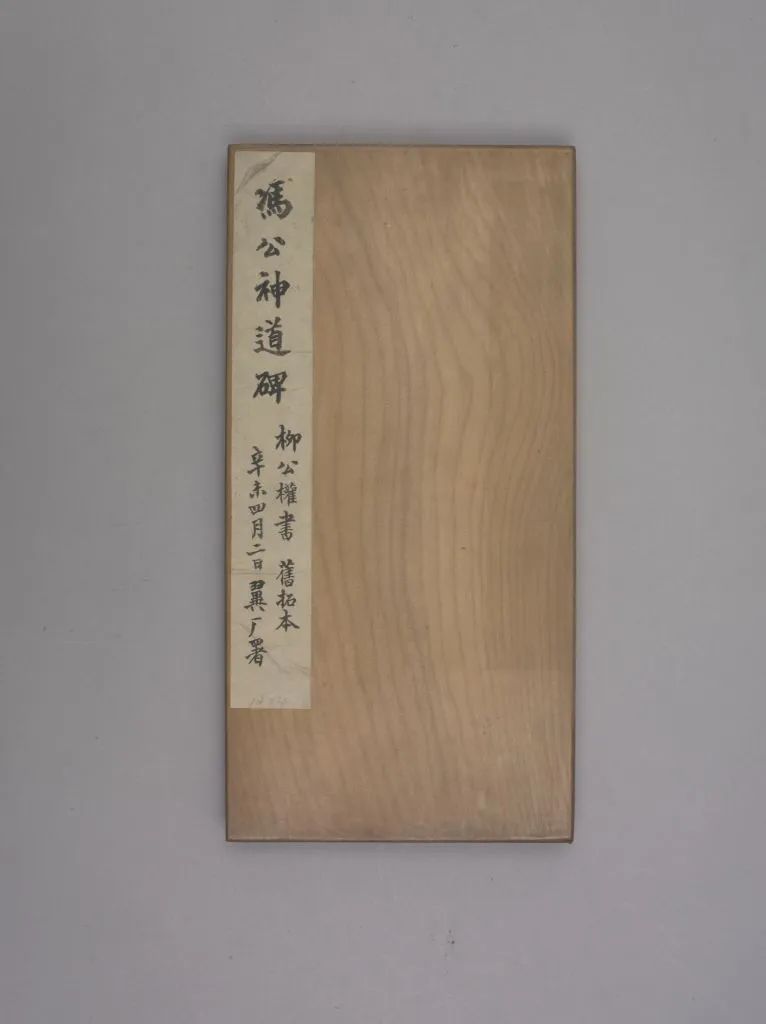 馮公神道碑
柳公權書 舊拓本
辛未四月二日翼厂署